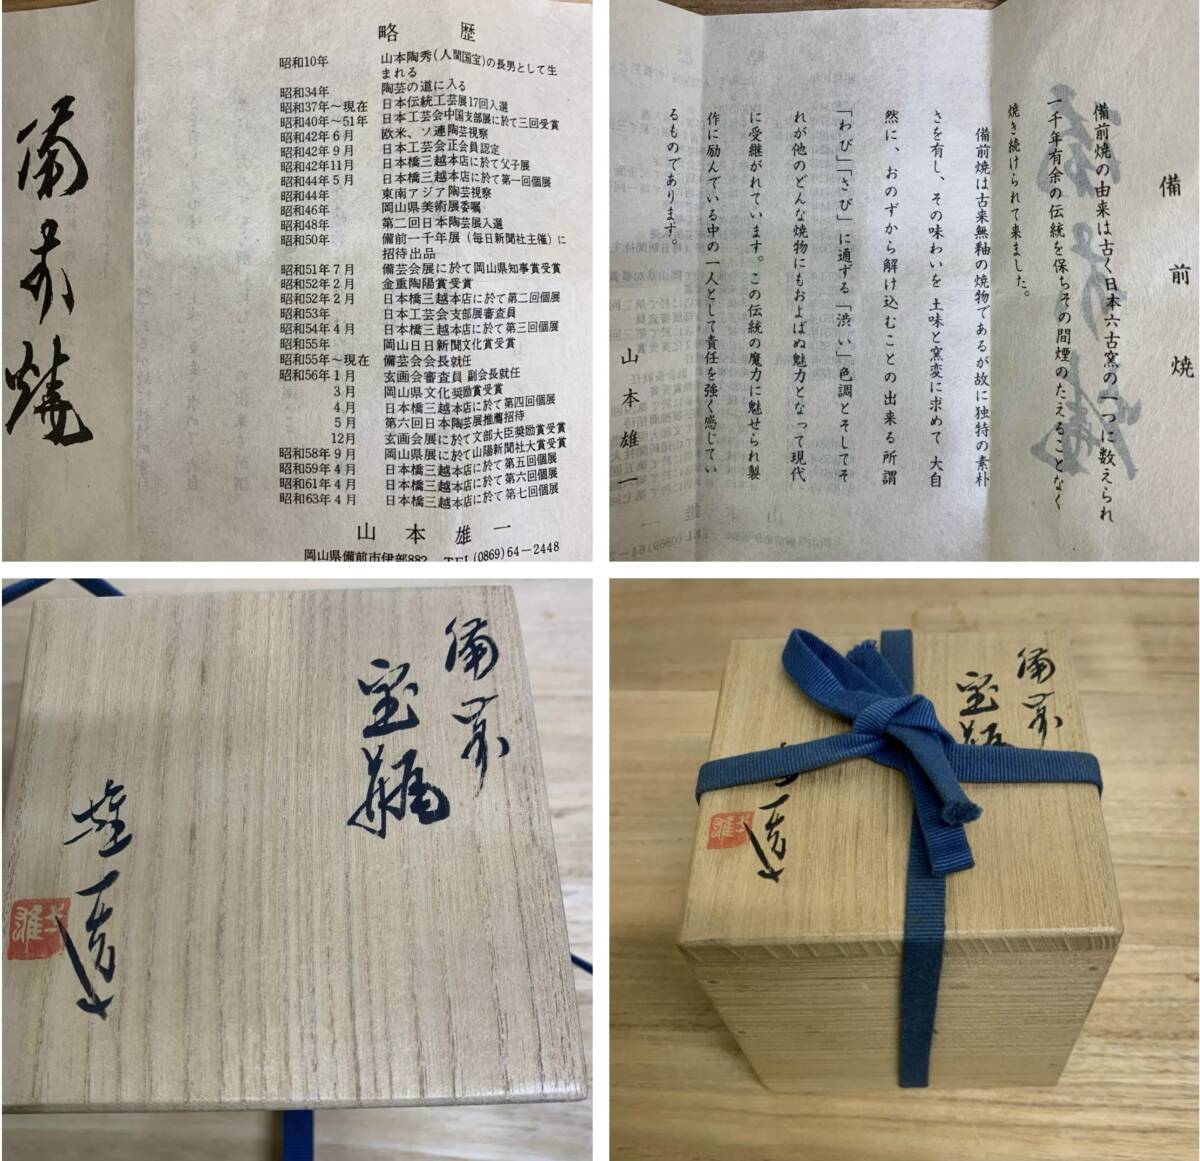 備前焼
略歴
昭和10年 山本陶秀(人間国宝)の長男として生
まれる
昭和34年 陶芸の道に入る
昭和37年～現在 日本伝統工芸展17回入選
昭和40年～51年 日本工芸会中国支部展に於て三回受賞
昭和42年6月 欧米、ソ連陶芸視察
昭和42年9月 日本工芸会正会員認定
昭和42年11月 日本橋三越本店に於て父子展
昭和44年5月 日本橋三越本店に於て第一回個展
昭和44年 東南アジア陶芸視察
昭和46年 岡山県美術展委嘱
昭和48年 第二回日本陶芸展入選
昭和50年 備前一千年展(毎日新聞社主催)に
招待出品
昭和51年7月 備芸会展に於て岡山県知事賞受賞
昭和52年2月 金重陶陽賞受賞
昭和52年2月 日本橋三越本店に於て第二回個展
昭和53年 日本工芸会支部展審査員
昭和54年4月 日本橋三越本店に於て第三回個展
昭和55年 岡山日日新聞文化賞受賞
昭和55年～現在 備芸会会長就任
昭和56年1月 玄画会審査員 副会長就任
3月 岡山県文化奨励賞受賞
4月 日本橋三越本店に於て第四回個展
5月 第六回日本陶芸展推薦招待
12月 玄画会展に於て文部大臣奨励賞受賞
昭和58年9月 岡山県展に於て山陽新聞社大賞受賞
昭和59年4月 日本橋三越本店に於て第五回個展
昭和61年4月 日本橋三越本店に於て第六回個展
昭和63年4月 日本橋三越本店に於て第七回個展
山本雄一
岡山県備前市伊部882 TEL(0869)64-2448
備前焼
備前焼の由来は古く日本六古窯の一つに数えられ
一千年有余の伝統を保ちその間煙のたえることなく
焼き続けられて来ました。
備前焼は古来無釉の焼物であるが故に独特の素朴
さを有し、その味わいを 土味と窯変に求めて 大自
然に、おのずから解け込むことの出来る所謂
「わび」「さび」に通ずる「渋い」色調とそしてそ
れが他のどんな焼物にもおよばぬ魅力となって現代
に受継がれています。この伝統の魔力に魅せられ製
作に励んでいる中の一人として責任を強く感じてい
るものであります。
山本雄一
備前
宝瓶
雄一造
備前
宝瓶
一造